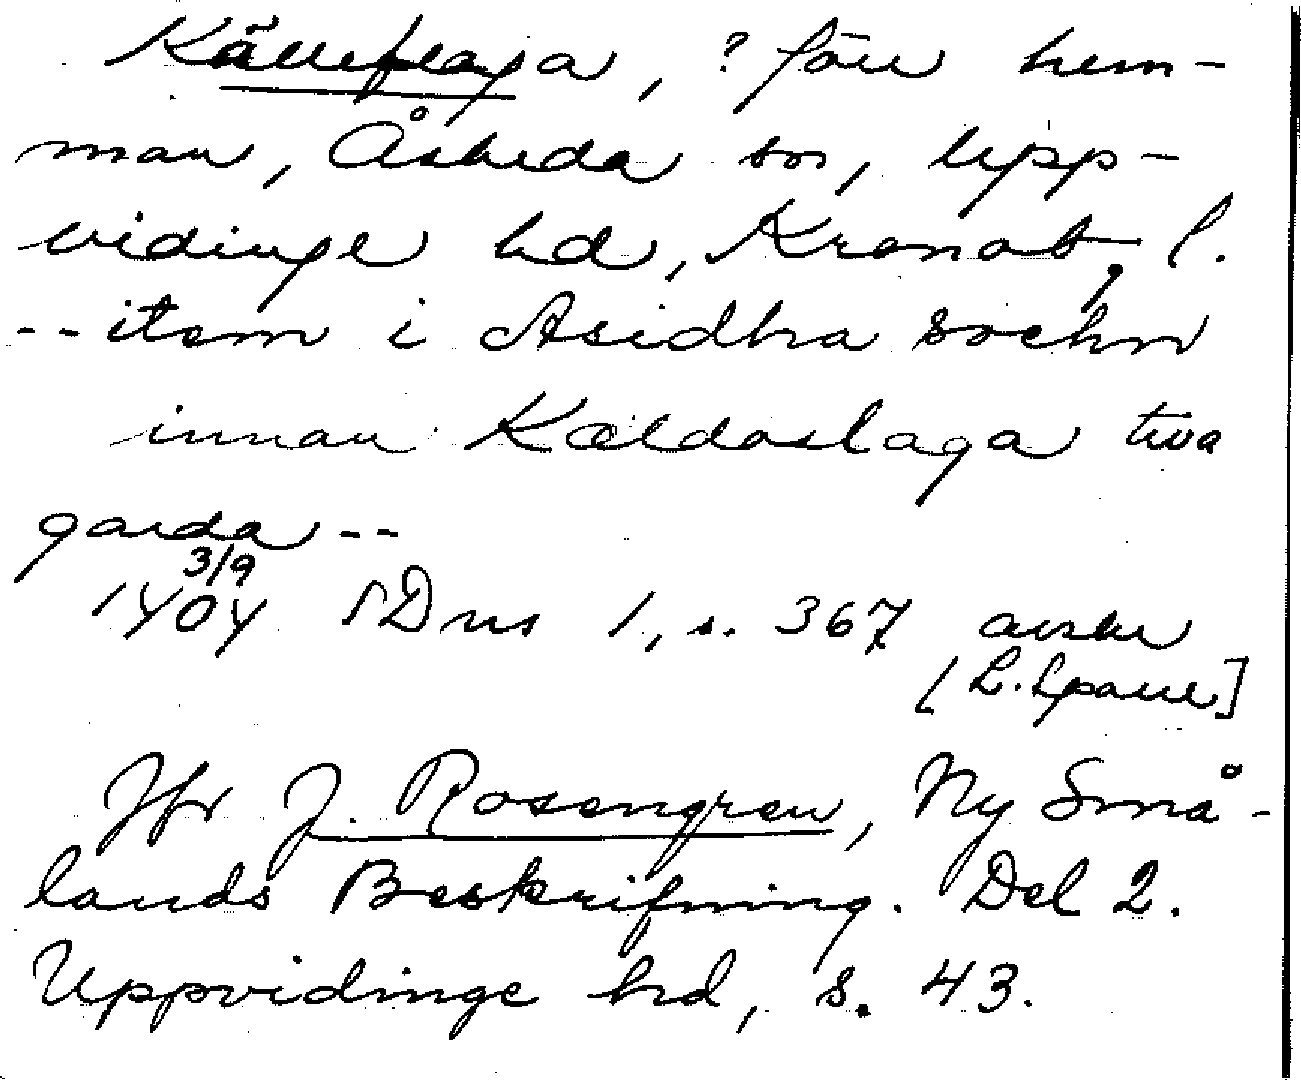 Källeflaga, ? förr hem-
man, Åsheda sn, Upp-
vidinge hd, Kronob. l.
-- item i Asidha sochn
innan Kældaslaga twa
garda --
3/9
1404 SDns 1, s. 367 avskr
[L.
Jfr J. Rosengren, Ny Små-
lands Beskrifning. Del 2.
Uppvidinge hd, s. 43.